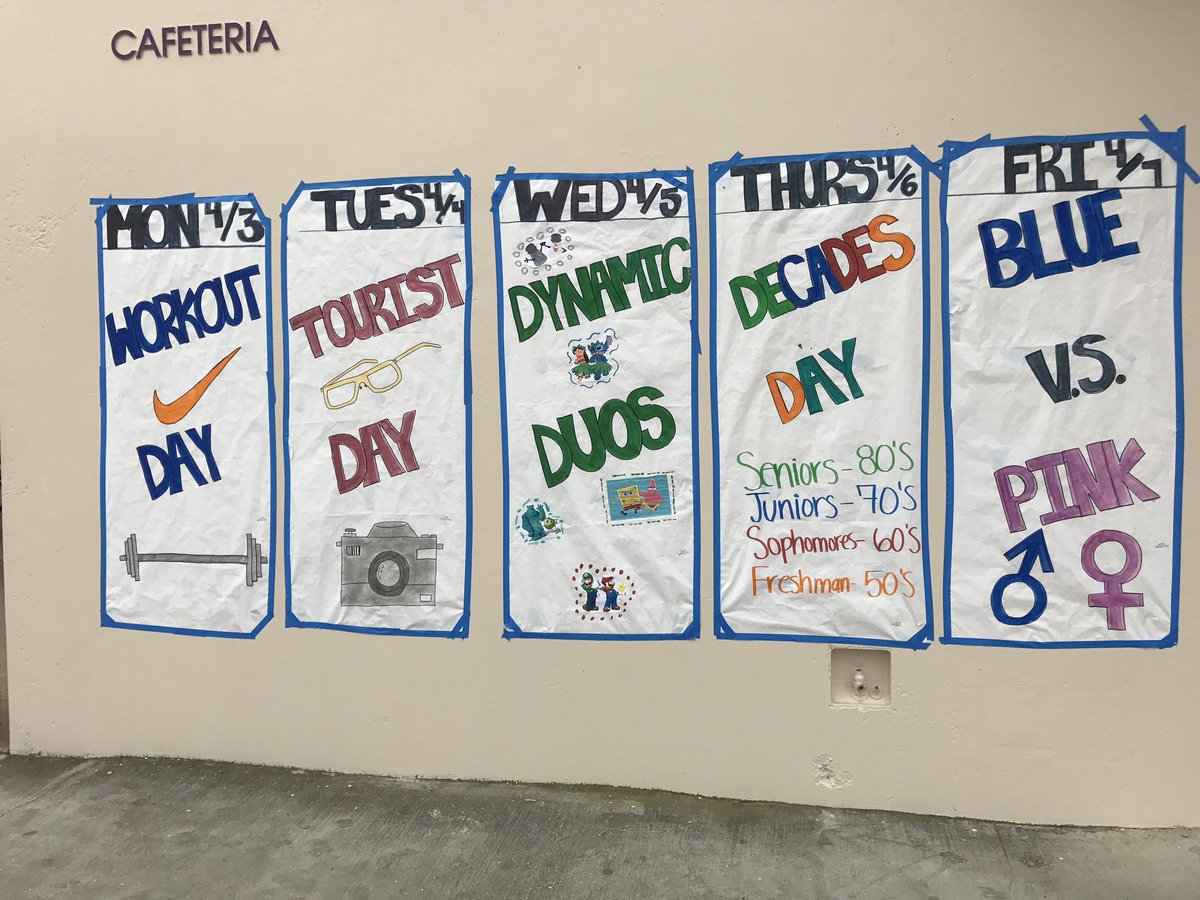 CAFETERIA
MON 4/3
WORKOUT
DAY
TUES 4/4
TOURIST
DAY
WED 4/5
DYNAMIC
DUOS
THURS 4/6
DECADES
DAY
Seniors-80's
Juniors-70's
Sophomores-60's
Freshman-50's
FRI 4/7
BLUE
V.S.
PINK